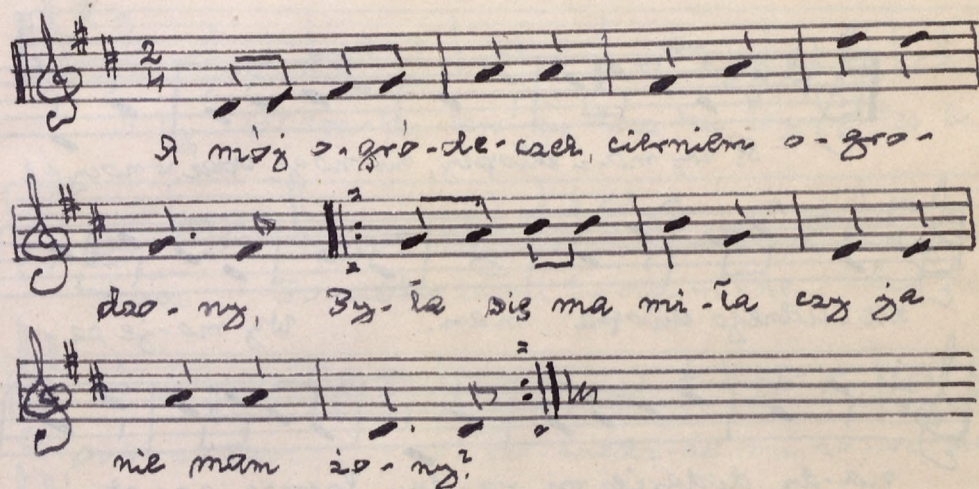 2
4
A mój o-gró-de-czek, cierniem o-gro-
dzo-ny, By-ła się ma mi-ła czy ja
nie mam żo-ny?